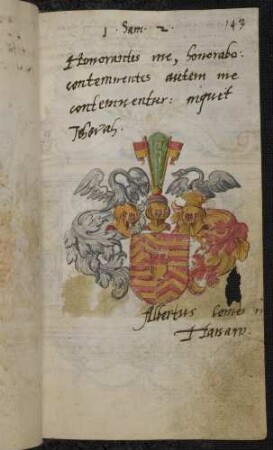 1. Sam. 2.
143
Honorantes me, honorabo:
contemnentes autem me
contemnentur: inquit
Jehovah.
Albertus Comes
Nassaw.